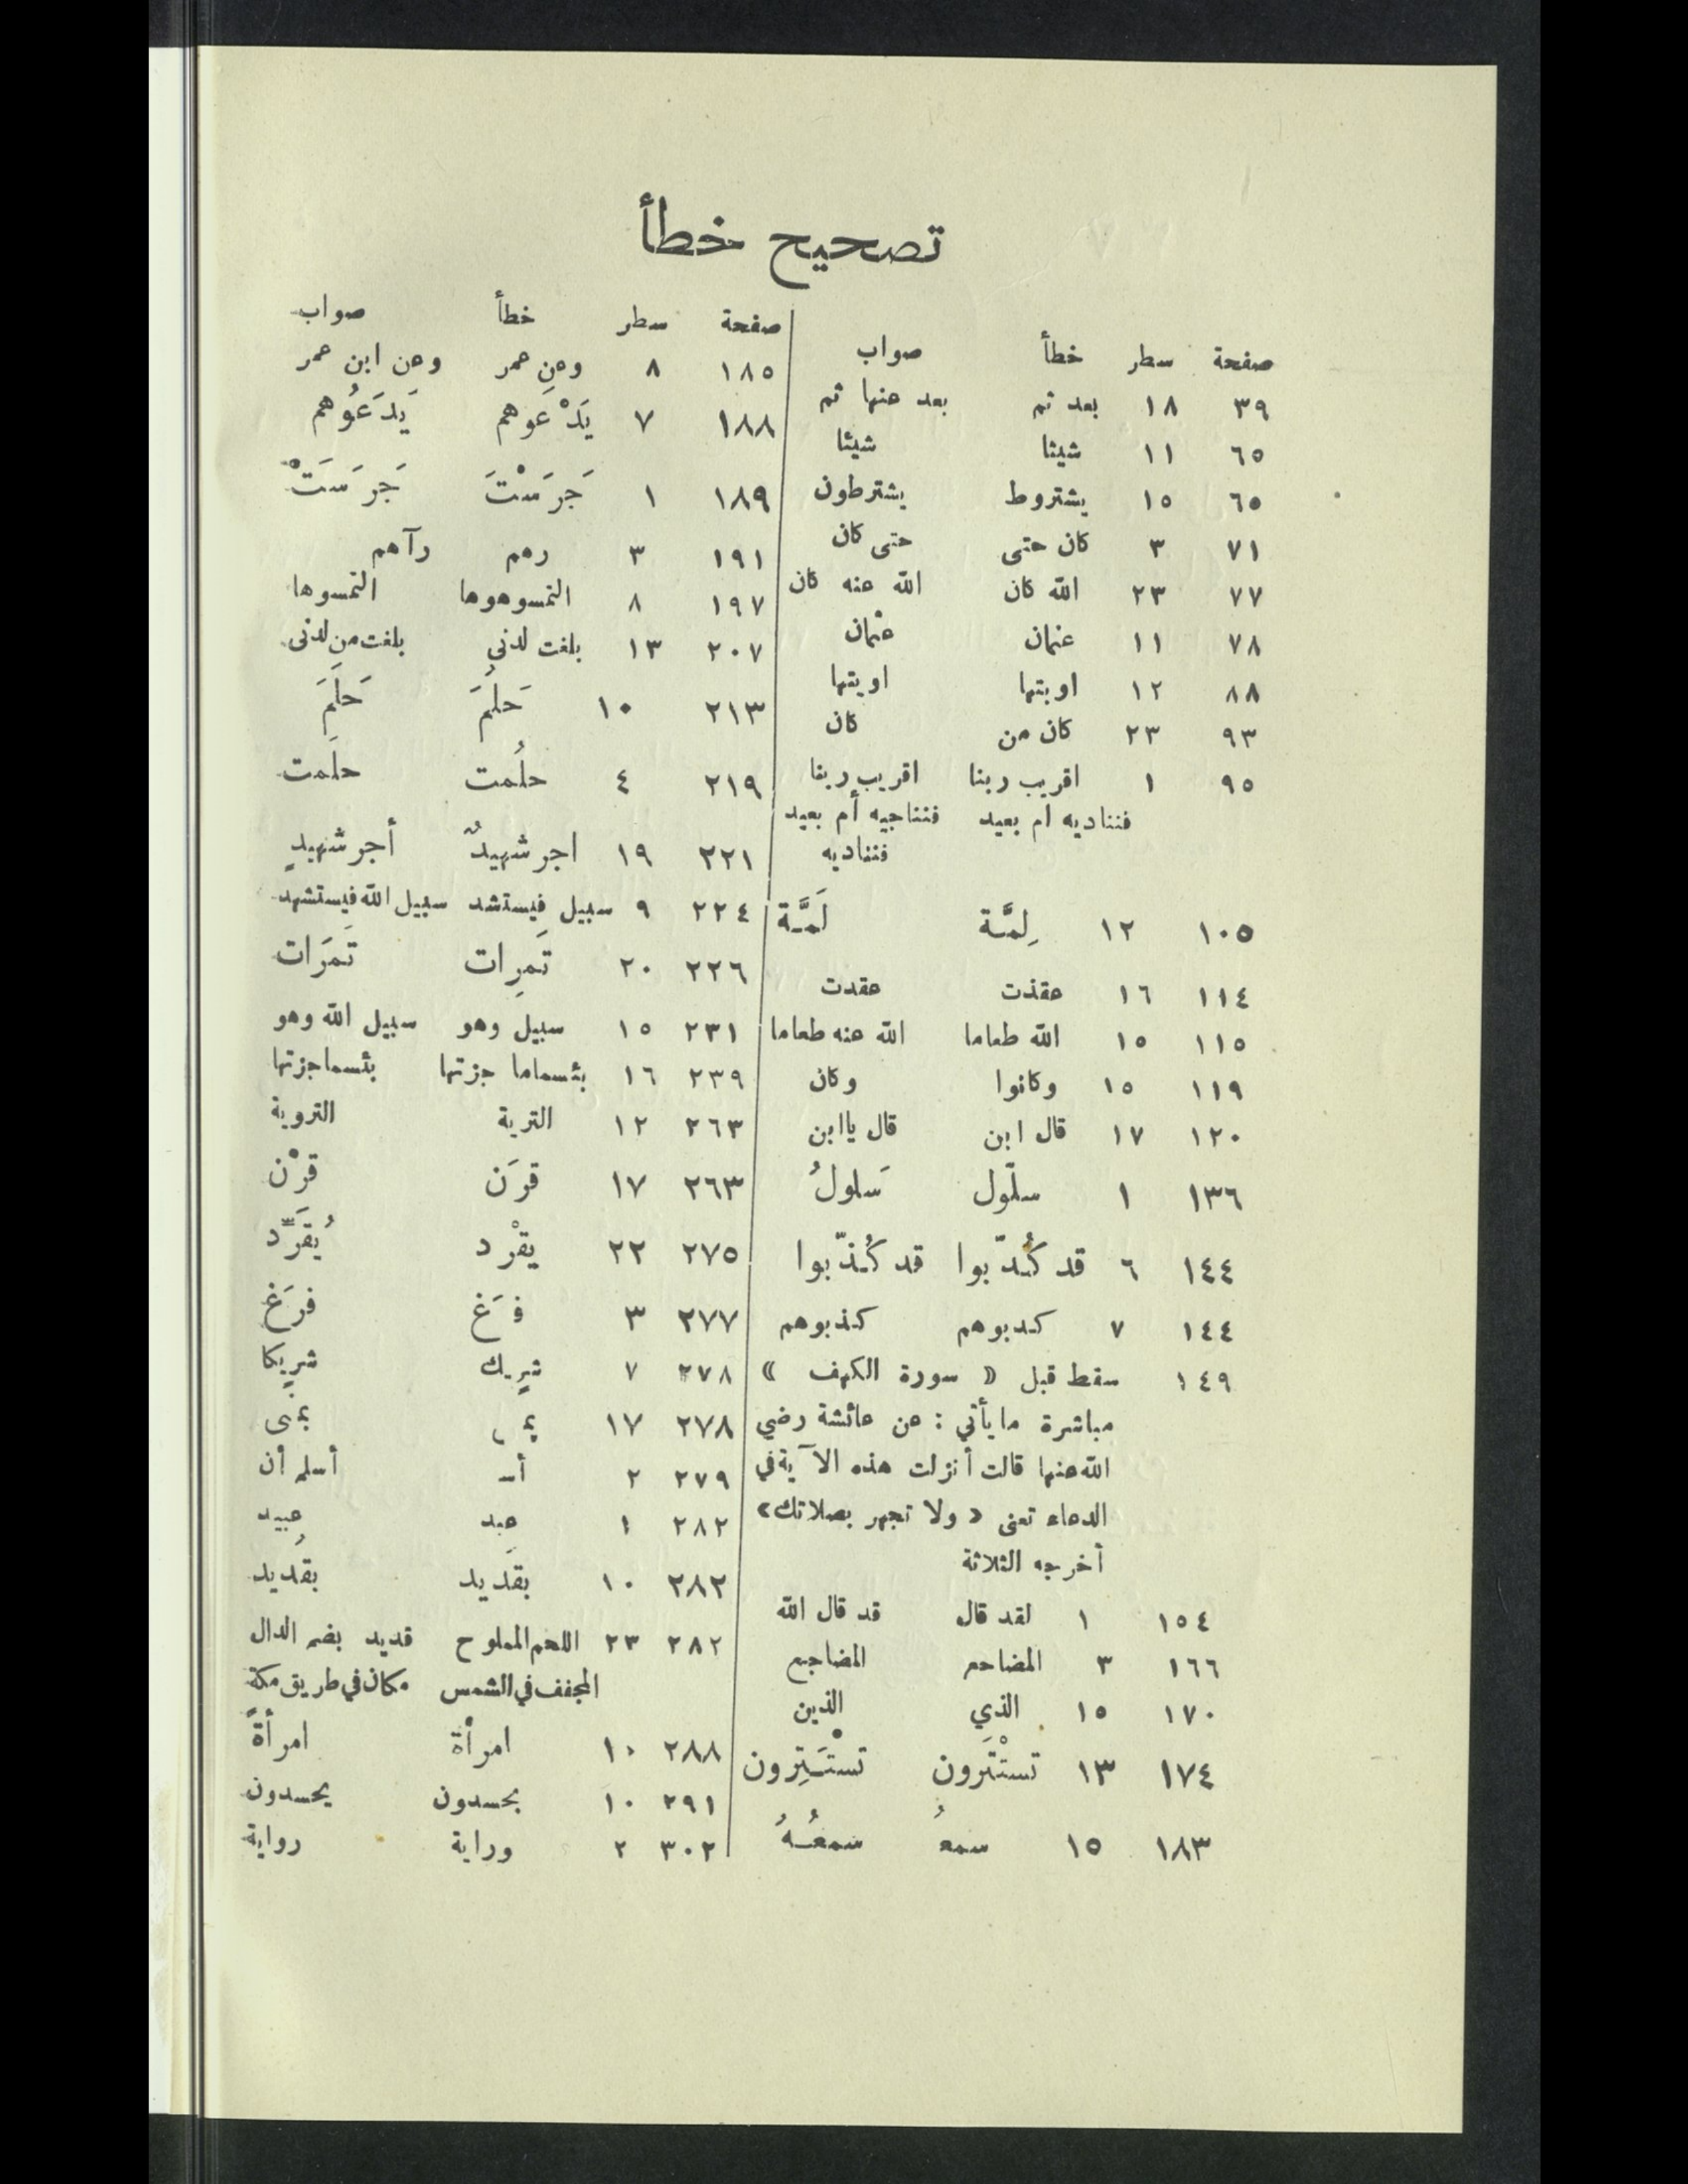 تصحيح خطأ
صفحة سطر خطأ صواب
٣٩ ١٨ بعد ثم بعد عنها ثم
٦٥ ١١ شيثا شيئا
٦٥ ١٥ يشتروط يشترطون
٧١ ٣ كان حتى حتى كان
٧٧ ٢٣ الله كان الله عنه كان
٧٨ ١١ عنمان عثمان
٨٨ ١٢ اوبتها اويتها
٩٣ ٢٣ كان من كان
٩٥ ١ اقريب ربنا اقريب ربنا
فنناديه ام بعيد فنناجيه أم بعيد
فنناديه
١٠٥ ١٢ لِمَّة لَمَّة
١١٤ ١٦ عقذت عقدت
١١٥ ١٥ الله طعاما الله عنه طعاما
١١٩ ١٥ وكانوا وكان
١٢٠ ١٧ قال ابن قال ياابن
١٣٦ ١ سلّول سَلولُ
١٤٤ ٦ قد كُدّبوا قد كُذّبوا
١٤٤ ٧ كدبوهم كذبوهم
١٤٩ سقط قبل « سورة الكهف »
مباشرة مايأتي : عن عائشة رضي
الله عنها قالت أنزلت هذه الآية في
الدعاء تعنى « ولا تجهر بصلاتك»
أخرجه الثلاثة
١٥٤ ١ لقد قال قد قال الله
١٦٦ ٣ المضاحم المضاجع
١٧٠ ١٥ الذي الذين
١٧٤ ١٣ تستْتَرون تستْتَتِرون
١٨٣ ١٥ سمعُ سمعُهُ
صفحة سطر خطأ صواب
١٨٥ ٨ وعن عمر وعن ابن عمر
١٨٨ ٧ يَدْعَوهم يَدَعُوهم
١٨٩ ١ جَرَسْتَ جَرَسَتْ
١٩١ ٣ رهم رآهم
١٩٧ ٨ التمسوهوها التمسوها
٢٠٧ ١٣ بلغت لدني بلغت من لدنى
٢١٣ ١٠ حَلُمَ حَلَمَ
٢١٩ ٤ حلُمت حلَمت
٢٢١ ١٩ اجر شهيدٌ أجر شهيدٍ
٢٢٤ ٩ سبيل فيستشد سبيل الله فيستشهد
٢٢٦ ٢٠ تَمرِات تَمَرَات
٢٣١ ١٥ سبيل وهو سبيل الله وهو
٢٣٩ ١٦ بئسماما جزتها بئسماجزتها
٢٦٣ ١٢ التربة التروية
٢٦٣ ١٧ قرَن قرْن
٢٧٥ ٢٢ يقْرد يُقَرَّد
٢٧٧ ٣ فَغ فرَغ
٢٧٨ ٧ شريك شريكا
٢٧٨ ١٧ بمنى
٢٧٩ ٢ أسـ أسلم أن
٢٨٢ ١ عبد عبيد
٢٨٢ ١٠ بقَديد بقُديد
٢٨٢ ٢٣ اللحم المملوح قديد بضم الدال
المجفف في الشمس مكان في طريق مكة
٢٨٨ ١٠ امرأة امرأةً
٢٩١ ١٠ بحسدون يحسدون
٣٠٢ ٢ وراية رواية